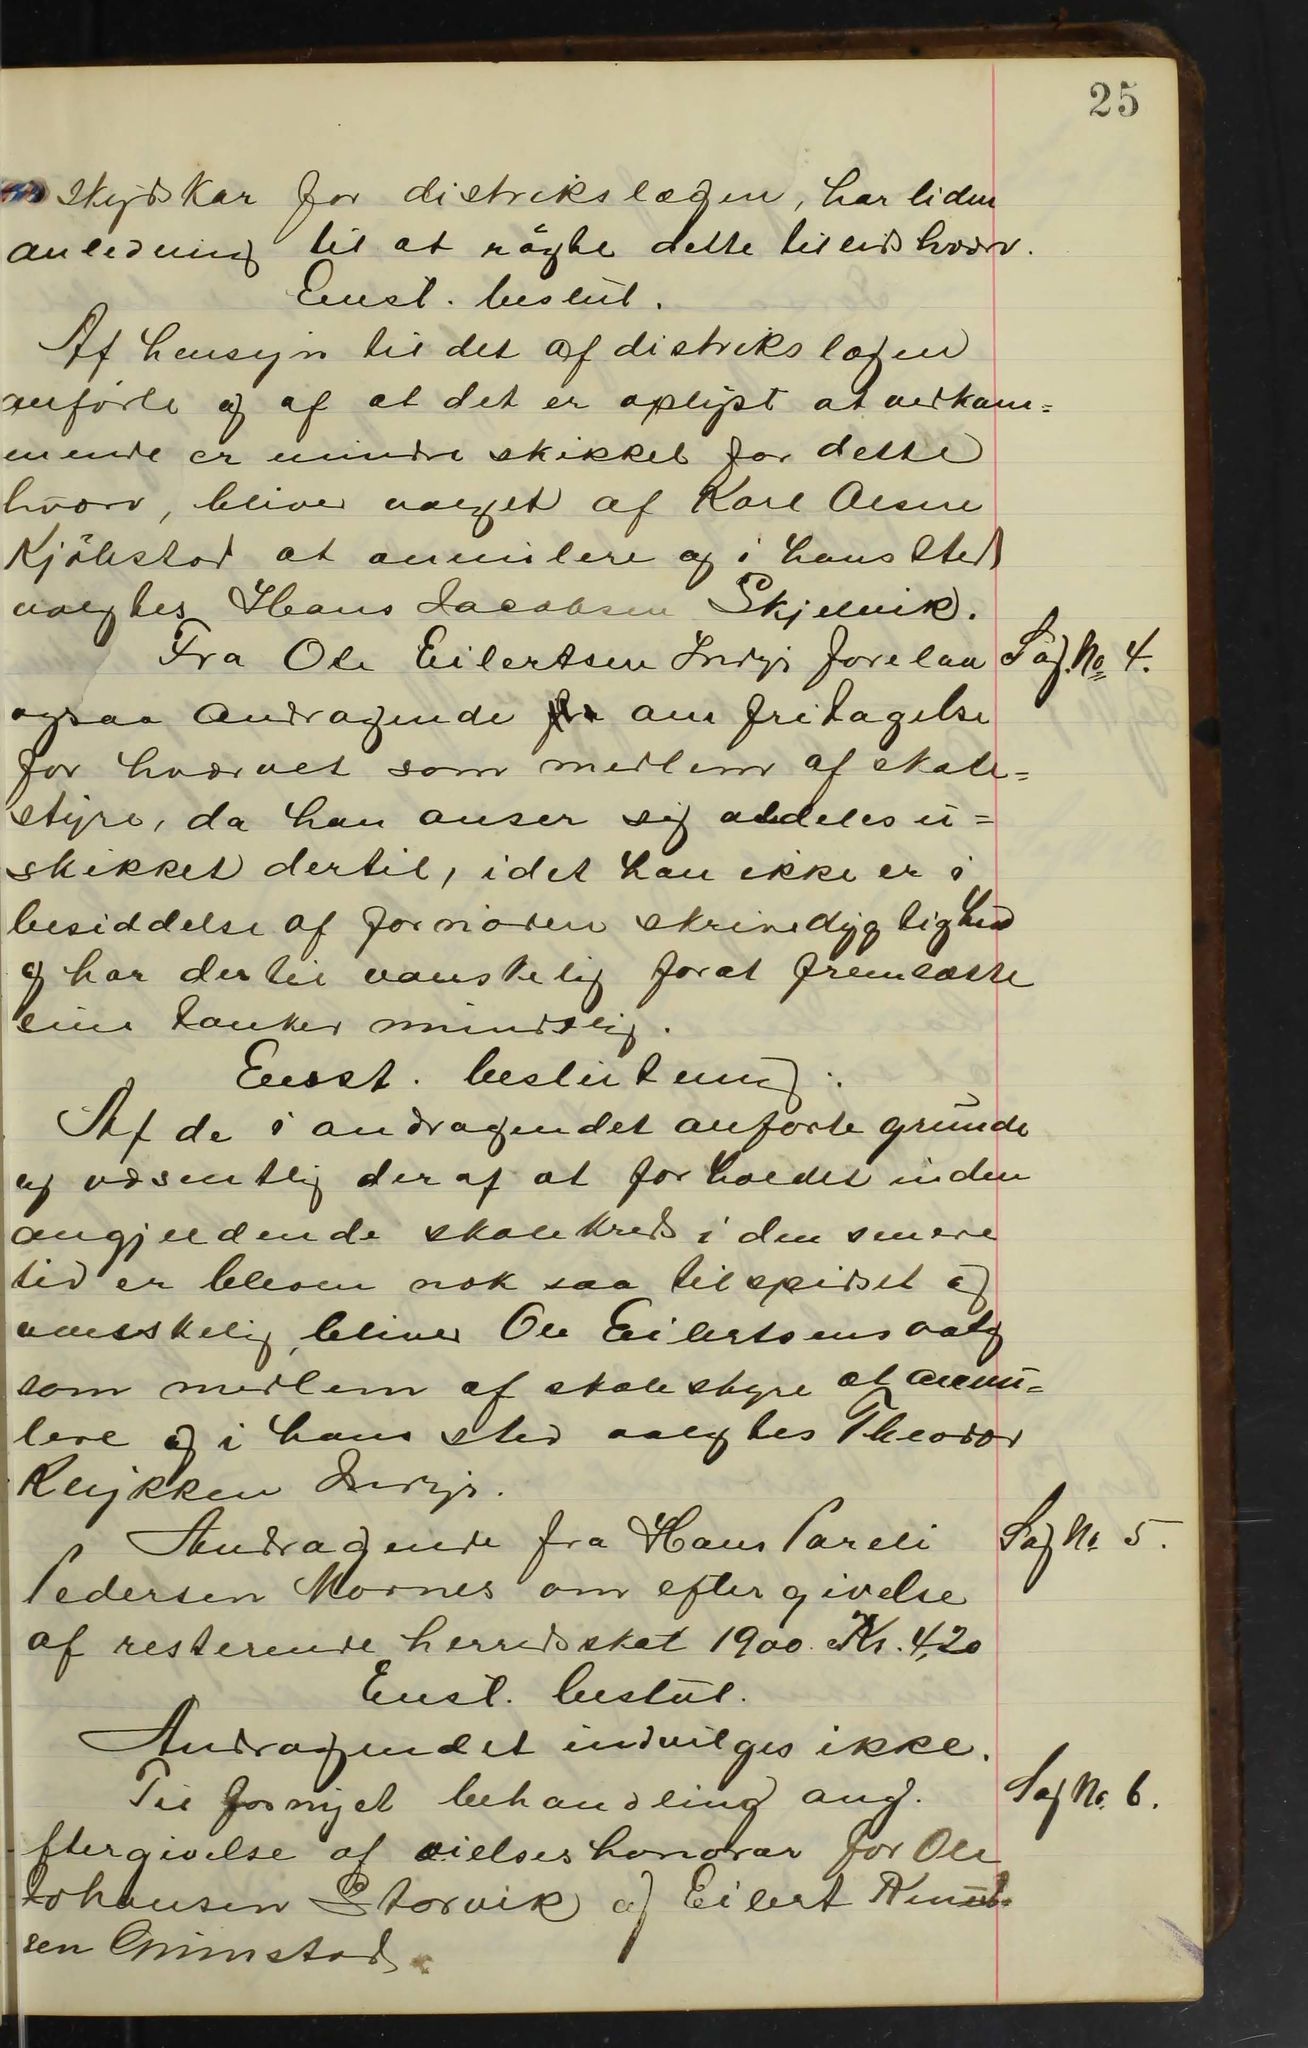 25
skydskar for distrikslægen, har liden
anledning til at røgte dette tillidshværv.
Enst. beslut.
Af hensyn til det af distrikslægen
anførte og af at det er oplyst at vedkom=
mende er mindre skikket for dette
hværv, bliver valget af Karl Olsen
Kjölstad at annulere og i hans sted
valgtes Hans Jacobsen Skjelvik.
Fra Ole Eilertsen Indyr forelaa Sag No 4.
ogsaa andragende om fritagelse
for hværvet som medlem af skole=
styre, da han anser sig aldeles u=
skikket dertil, idet han ikke er i
besiddelse af fornöden skrivedygtighed
og har dertil vanskelig forat fremsætte
sine tanker mundtlig.
Enst. beslutning:
Af de i andragendet anförte grunde
og væsentlig deraf at forholdet inden
angjeldende skolekreds i den senere
tid er bleven nok saa tilspidset og
vanskelig, bliver Ole Eilertsens valg
som medlem af skolestyre at annu=
lere og i hans sted valgtes Theodor
Klykken Indyr.
Andragende fra Hans Pareli Sag No 5.
Pedersen Mornes om eftergivelse
af resterende herredsskat 1900 Kr. 4,20
Enst. beslut.
Andragendet indvilges ikke.
Til fornyet behandling ang. Sag No. 6.
ftergivelse af vielseshonorar for Ole
Johansen Storvik og Eilert Knut=
sen Grimstad.